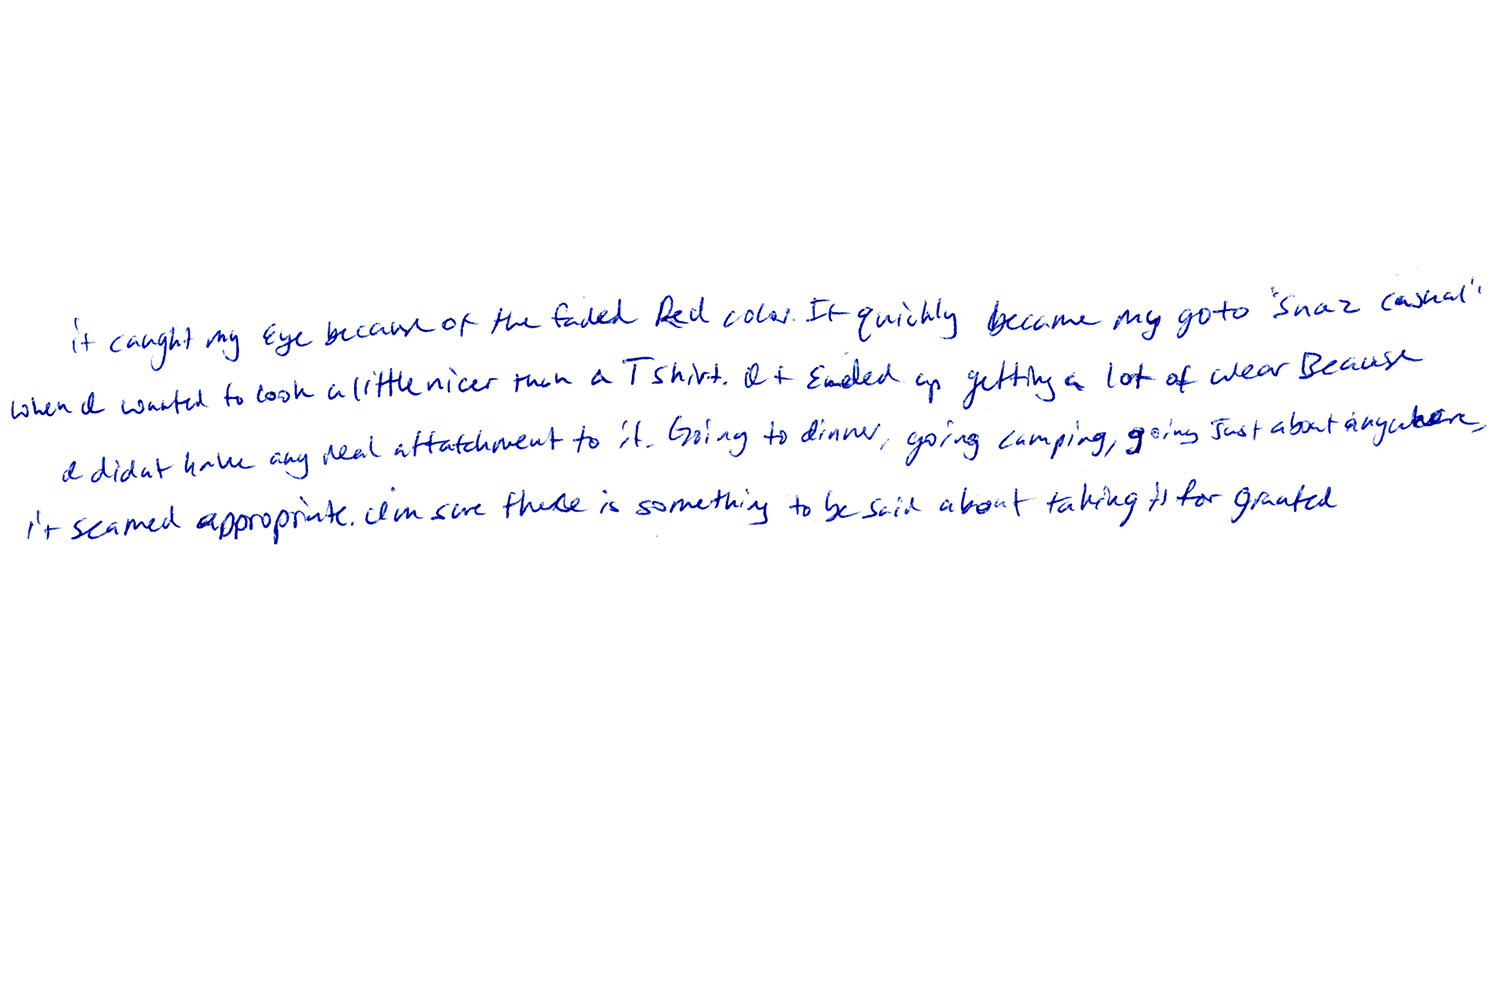 it caught my Eye because of the faded Red color. It quickly became my goto "Snaz casual"
when I wanted to look a little nicer than a T shirt. It Ended up getting a lot of wear Beause
I didnt have any real attatchment to it. Going to dinner, going camping, going Just about anywhere,
it seamed appropriate. I'm sure there is something to be said about taking it for granted